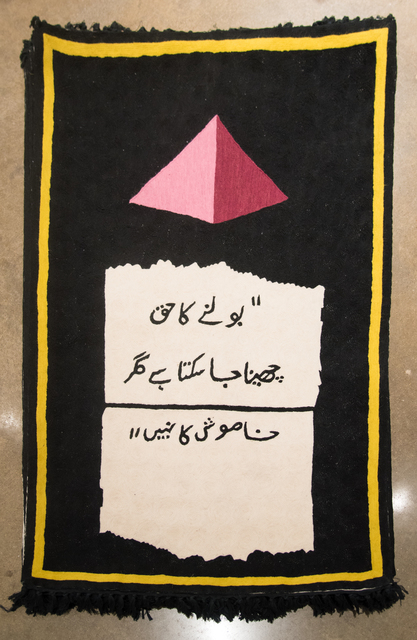 "بولنے کا حق
چھینا جا سکتا ہے مگر
خاموشی کا نہیں"